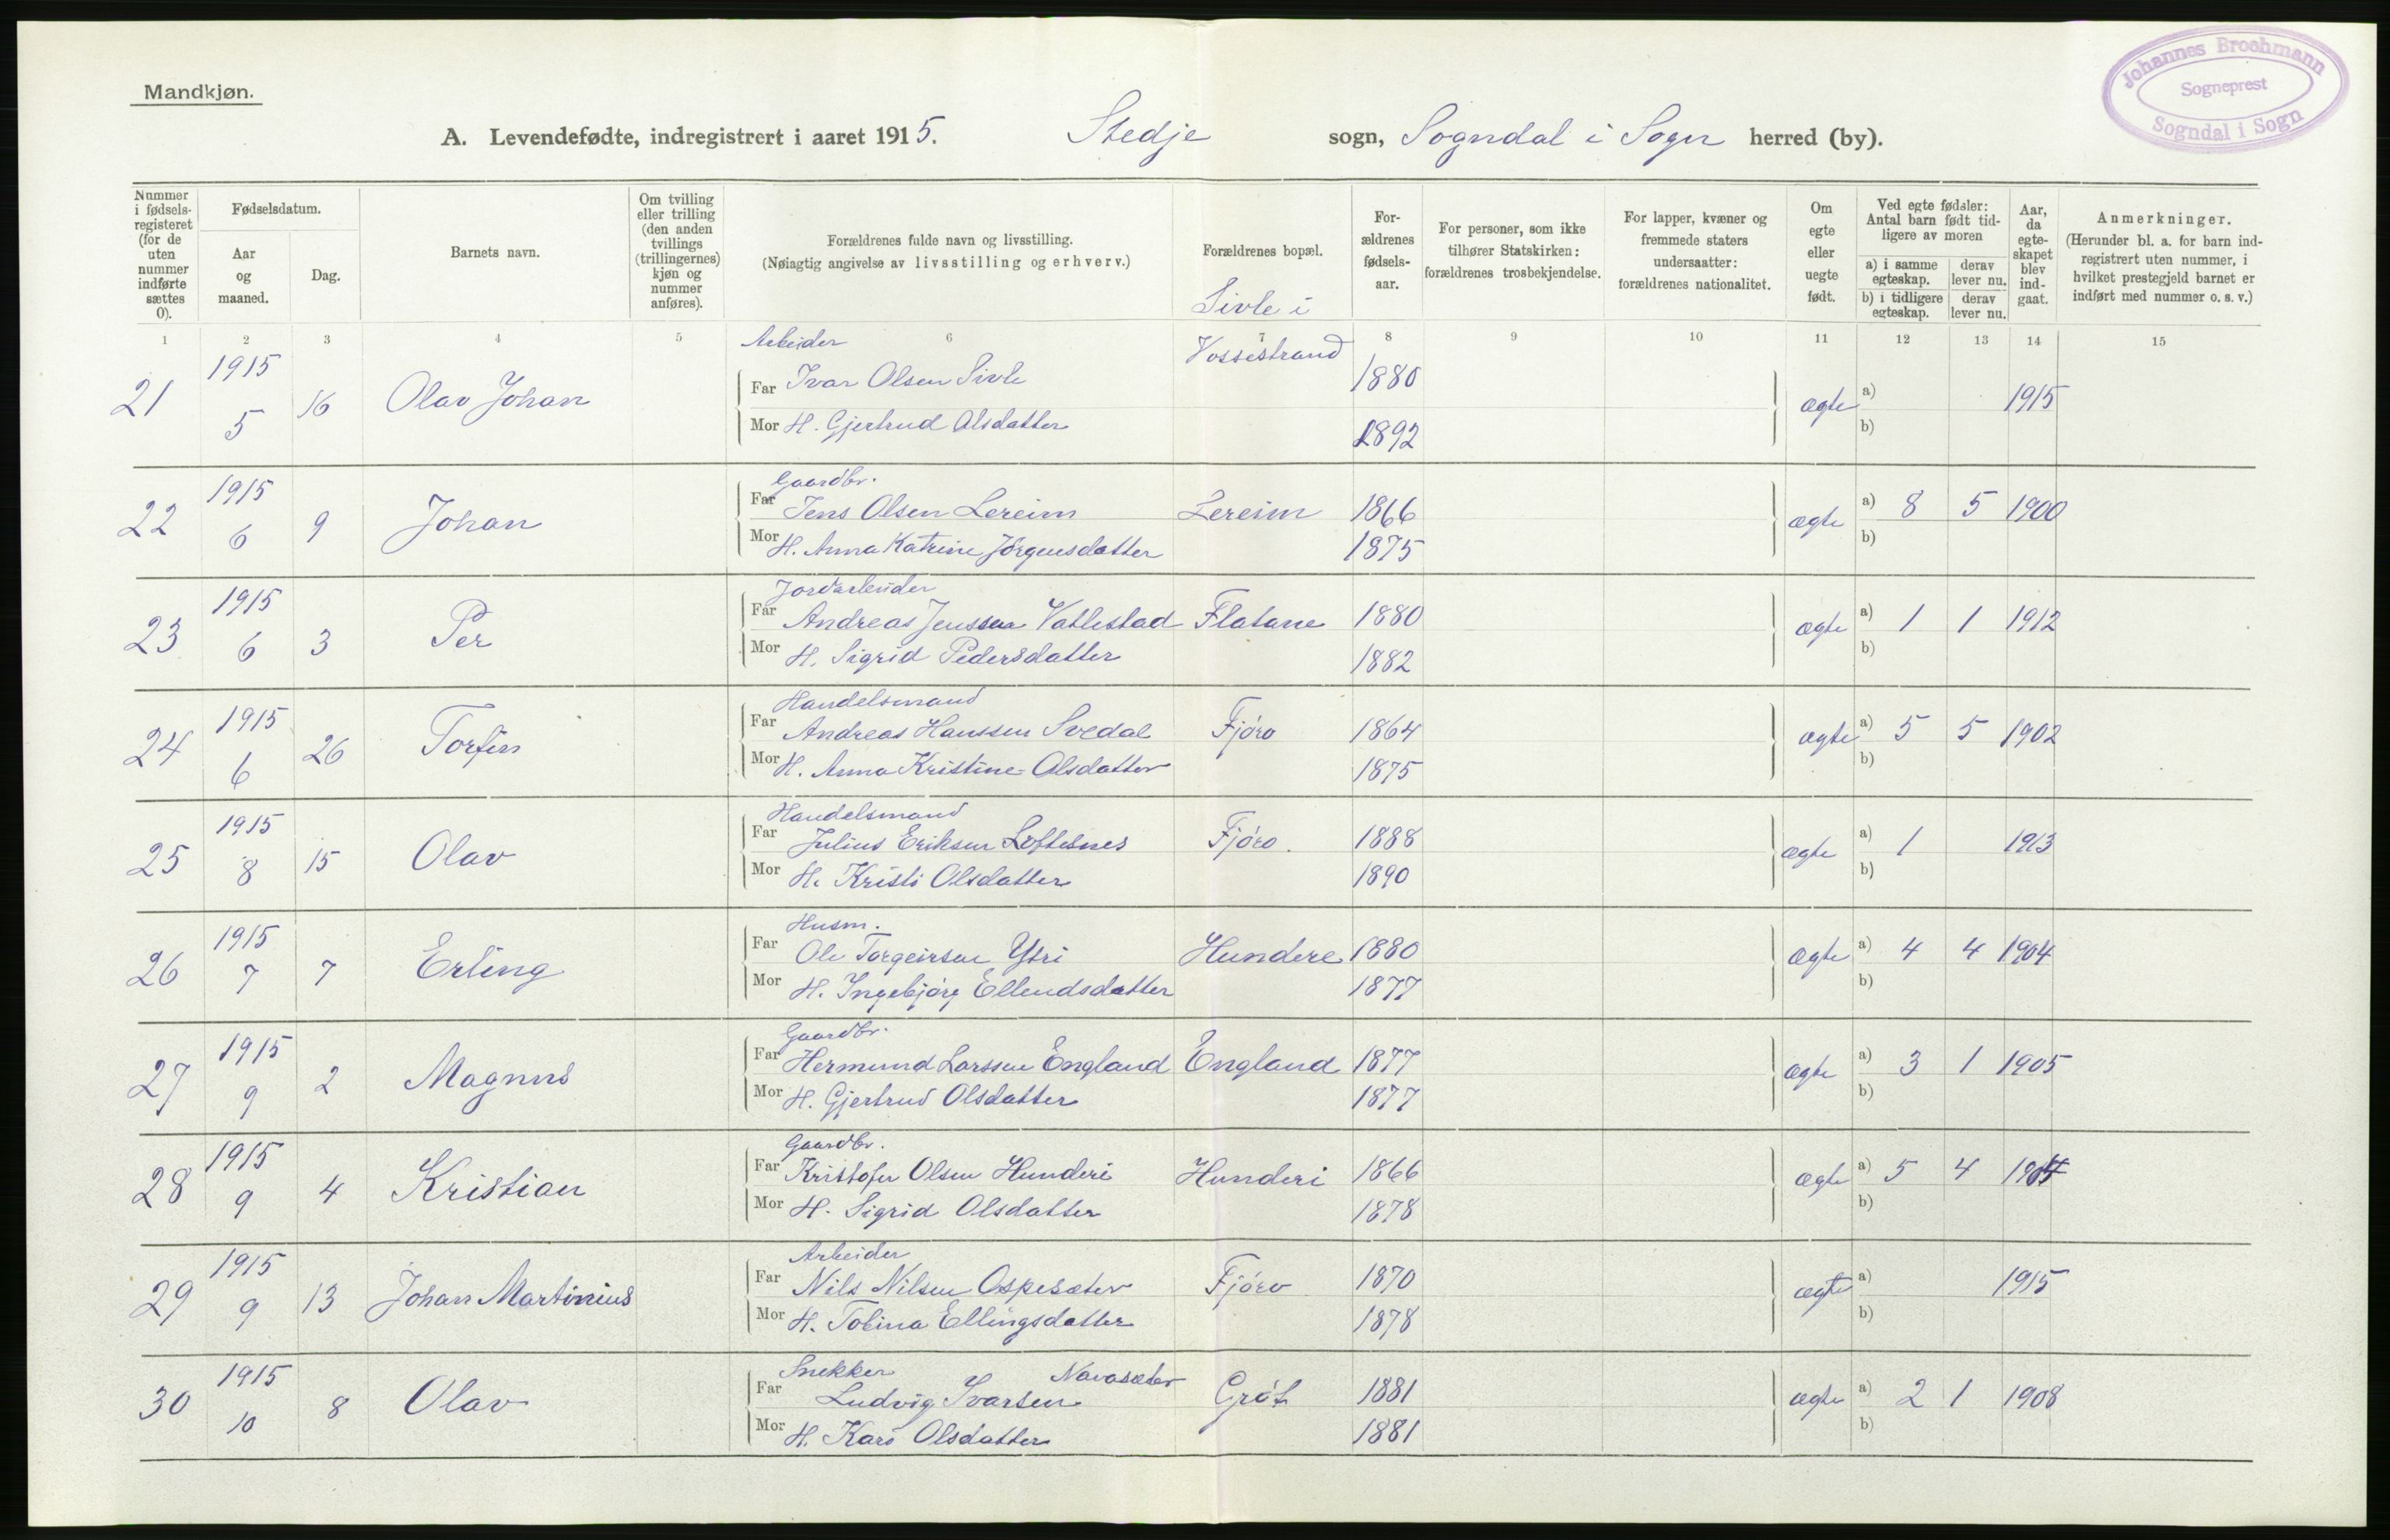 Mandkjøn.
Johannes Brochmann
Sogneprest
Sogndal i Sogn
A. Levendefødte, indregistrert i aaret 1915. Stedje sogn, Sogndal i Sogn herred (by).
Nummer i fødsels-registeret (for de uten nummer indførte sættes 0).
Fødselsdatum.
Aar og maaned.
Dag.
Barnets navn.
Om tvilling eller trilling (den anden tvillings (trillingernes) kjøn og nummer anføres).
Forældrenes fulde navn og livsstilling.
(Nøiagtig angivelse av livsstilling og erhverv.)
Forældrenes bopæl.
For-ældrenes fødsels-aar.
For personer, som ikke tilhører Statskirken: forældrenes trosbekjendelse.
For lapper, kvæner og fremmede staters undersaatter: forældrenes nationalitet.
Om egte eller uegte født.
Ved egte fødsler: Antal barn født tid-ligere av moren
a) i samme egteskap. derav lever nu.
b) i tidligere egteskap. derav lever nu.
Aar, da egte-skapet blev ind-gaat.
Anmerkninger.
(Herunder bl. a. for barn ind-registrert uten nummer, i hvilket prestegjeld barnet er indført med nummer o. s. v.)
1 2 3 4 5 6 7 8 9 10 11 12 13 14 15
Arbeider Sivle i Vossestrand
21 1915 5 16 Olav Johan Far Ivar Olsen Sivle 1880 ægte a) 1915
Mor H. Gjertrud Olsdatter 1892 b)
Gaardbr.
22 1915 6 9 Johan Far Jens Olsen Lereim Lereim 1866 ægte a) 8 5 1900
Mor H. Anna Katrine Jørgensdatter 1875 b)
Jordarbeider
23 1915 6 3 Per Far Andreas Jenssen Vatlestad Flatane 1880 ægte a) 1 1 1912
Mor H. Sigrid Pedersdatter 1882 b)
Handelsmand
24 1915 6 26 Torfin Far Andreas Hanssen Svedal Fjøro 1864 ægte a) 5 5 1902
Mor H. Anna Kristine Olsdatter 1875 b)
Handelsmand
25 1915 8 15 Olav Far Julius Eriksen Loftesnes Fjøro. 1888 ægte a) 1 1913
Mor H. Kristi Olsdatter 1890 b)
Husm.
26 1915 7 7 Erling Far Ole Torgeirsen Ytri Hundere 1880 ægte a) 4 4 1904
Mor H. Ingebjørg Ellendsdatter 1877 b)
Gaardbr.
27 1915 9 2 Magnus Far Hermund Larssen England England 1877 ægte a) 3 1 1905
Mor H. Gjertrud Olsdatter 1877 b)
Gaardbr.
28 1915 9 4 Kristian Far Kristofer Olsen Hunderi Hunderi 1866 ægte a) 5 4
Mor H. Sigrid Olsdatter 1878 b)
Arbeider
29 1915 9 13 Johan Martinius Far Nils Nilsen Ospesæter Fjøro 1870 ægte a) 1915
Mor H. Tobina Ellingsdatter 1878 b)
Snekker Navasæter
30 1915 10 8 Olav Far Ludvig Ivarsen Grøt 1881 ægte a) 2 1 1908
Mor H. Kari Olsdatter 1881 b)